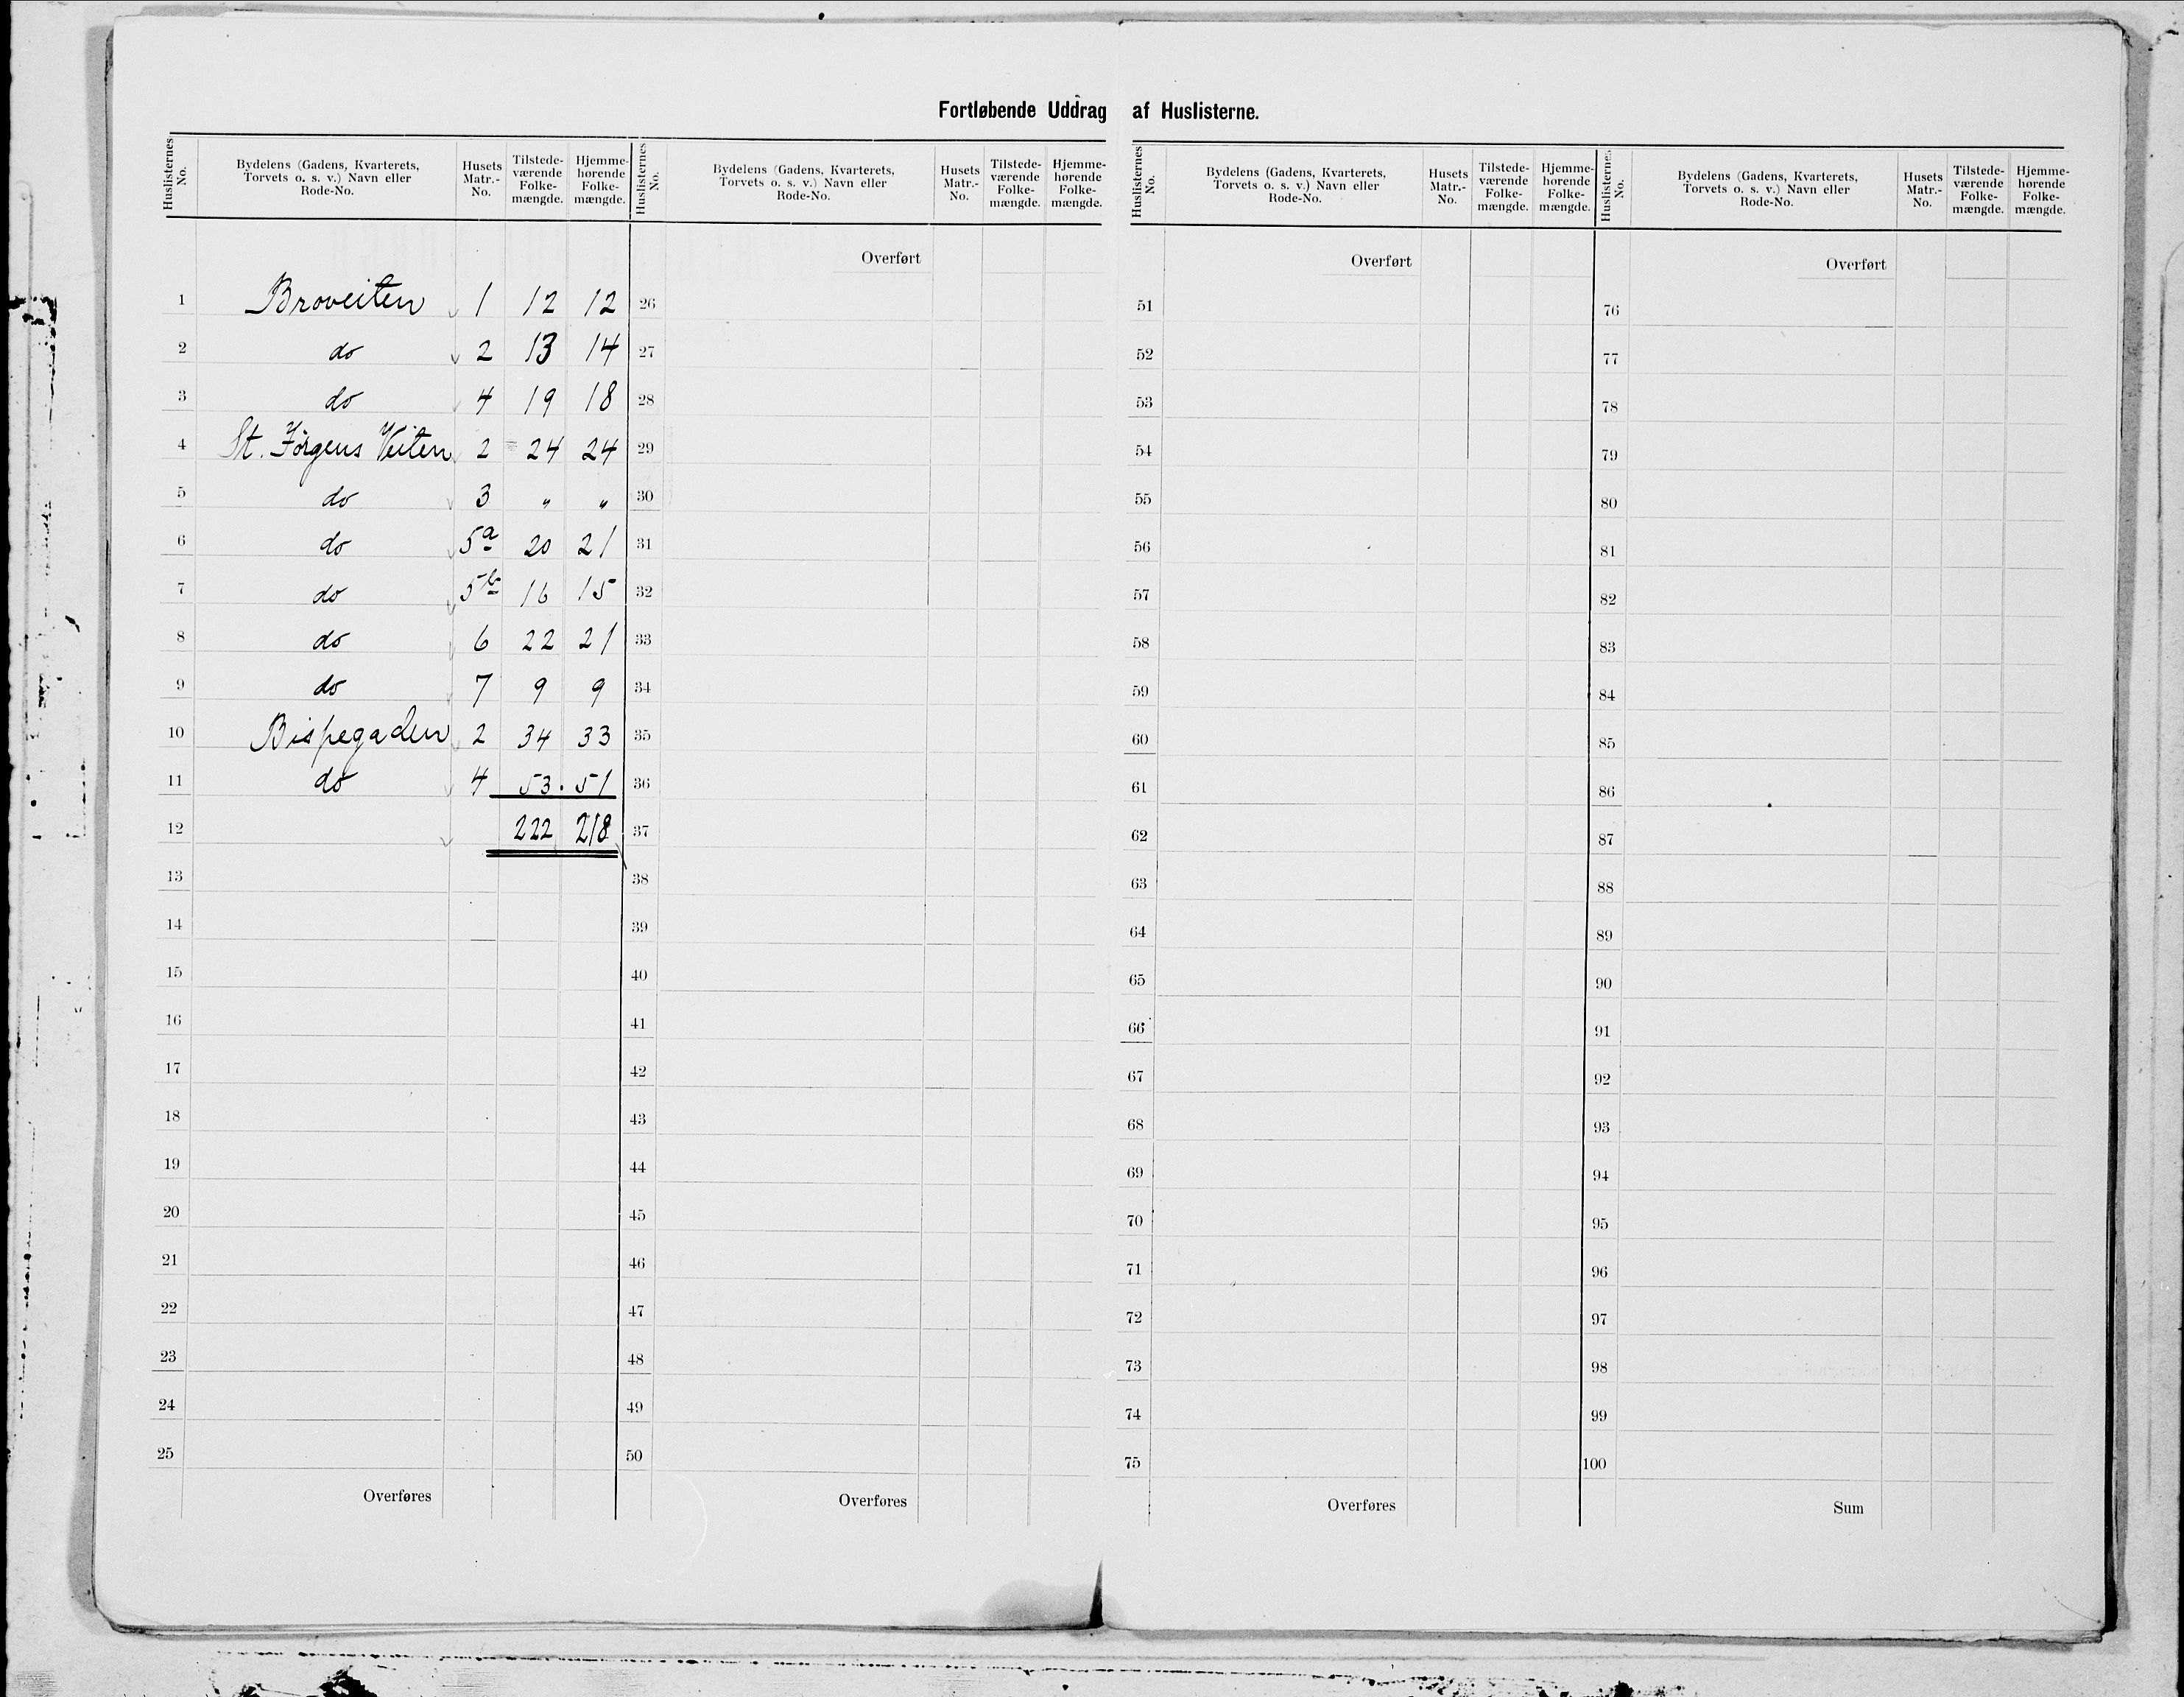 Fortløbende Uddrag af Huslisterne.
Huslisternes No. Bydelens (Gadens, Kvarterets, Torvets o. s. v.) Navn eller Rode-No. Husets Matr.-No. Tilstedeværende Folkemængde. Hjemmehørende Folkemængde.
1 Broveiten 1 12 12
2 do 2 13 14
3 do 4 19 18
4 St. Jörgens Veiten 2 24 24
5 do 3 " "
6 do 5a 20 21
7 do 5b 16 15
8 do 6 22 21
9 do 7 9 9
10 Bispegaden 2 34 33
11 do 4 53 . 51
12 222 218
13
14
15
16
17
18
19
20
21
22
23
24
25
Overføres
Huslisternes No. Bydelens (Gadens, Kvarterets, Torvets o. s. v.) Navn eller Rode-No. Husets Matr.-No. Tilstedeværende Folkemængde. Hjemmehørende Folkemængde.
Overført
26
27
28
29
30
31
32
33
34
35
36
37
38
39
40
41
42
43
44
45
46
47
48
49
50
Overføres
Huslisternes No. Bydelens (Gadens, Kvarterets, Torvets o. s. v.) Navn eller Rode-No. Husets Matr.-No. Tilstedeværende Folkemængde. Hjemmehørende Folkemængde.
Overført
51
52
53
54
55
56
57
58
59
60
61
62
63
64
65
66
67
68
69
70
71
72
73
74
75
Overføres
Huslisternes No. Bydelens (Gadens, Kvarterets, Torvets o. s. v.) Navn eller Rode-No. Husets Matr.-No. Tilstedeværende Folkemængde. Hjemmehørende Folkemængde.
Overført
76
77
78
79
80
81
82
83
84
85
86
87
88
89
90
91
92
93
94
95
96
97
98
99
100
Sum